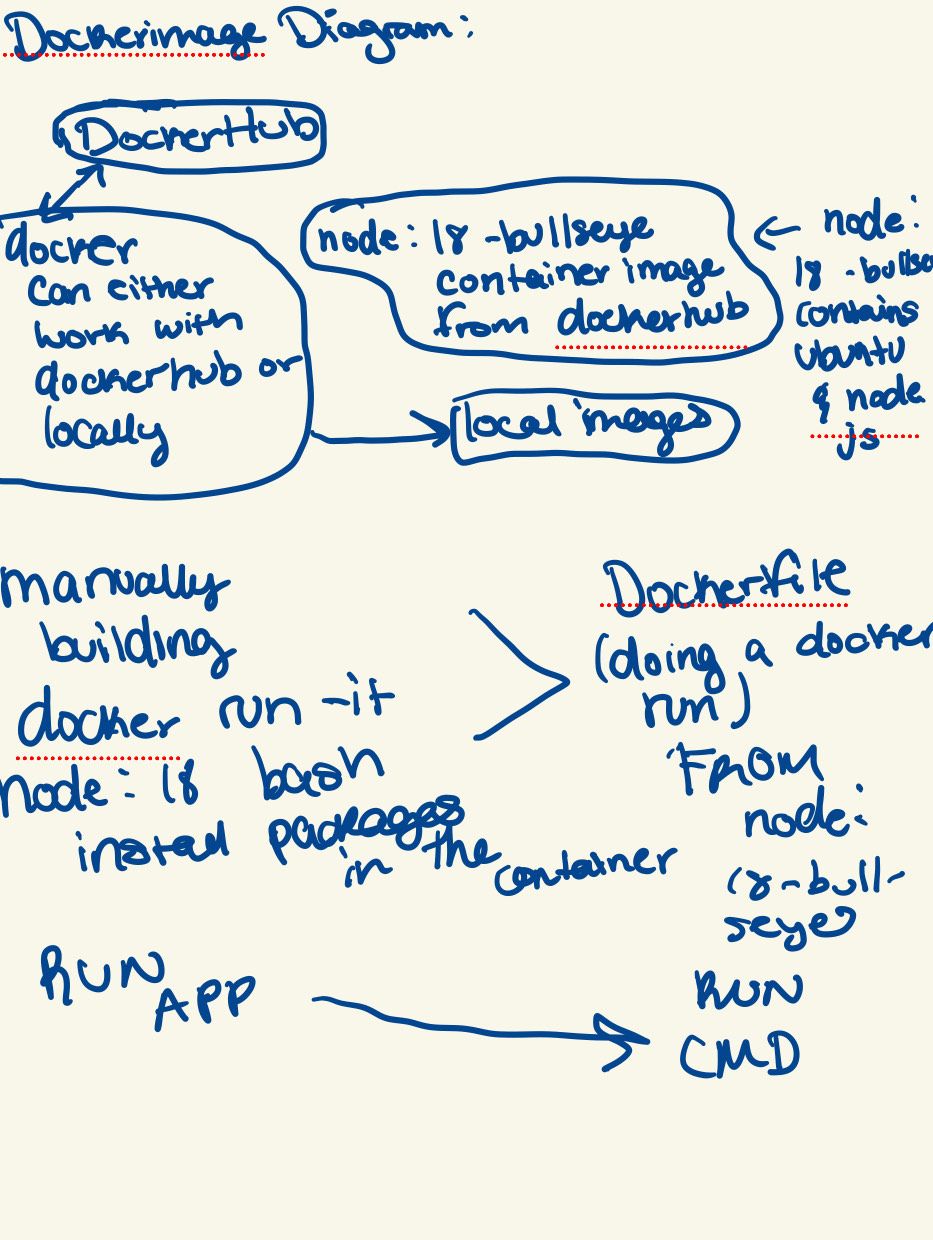 Dockerimage Diagram:
DockerHub
docker
can either
work with
dockerhub or
locally
node: 18-bullseye
container image
from dockerhub
node:
18-bullse
contains
ubuntu
& node
js
local images
manually
building
docker run -it
node: 18 bash
install packages
in the container
RUN
APP
Dockerfile
(doing a docker
run)
FROM
node:
18-bull-
seye
RUN
CMD